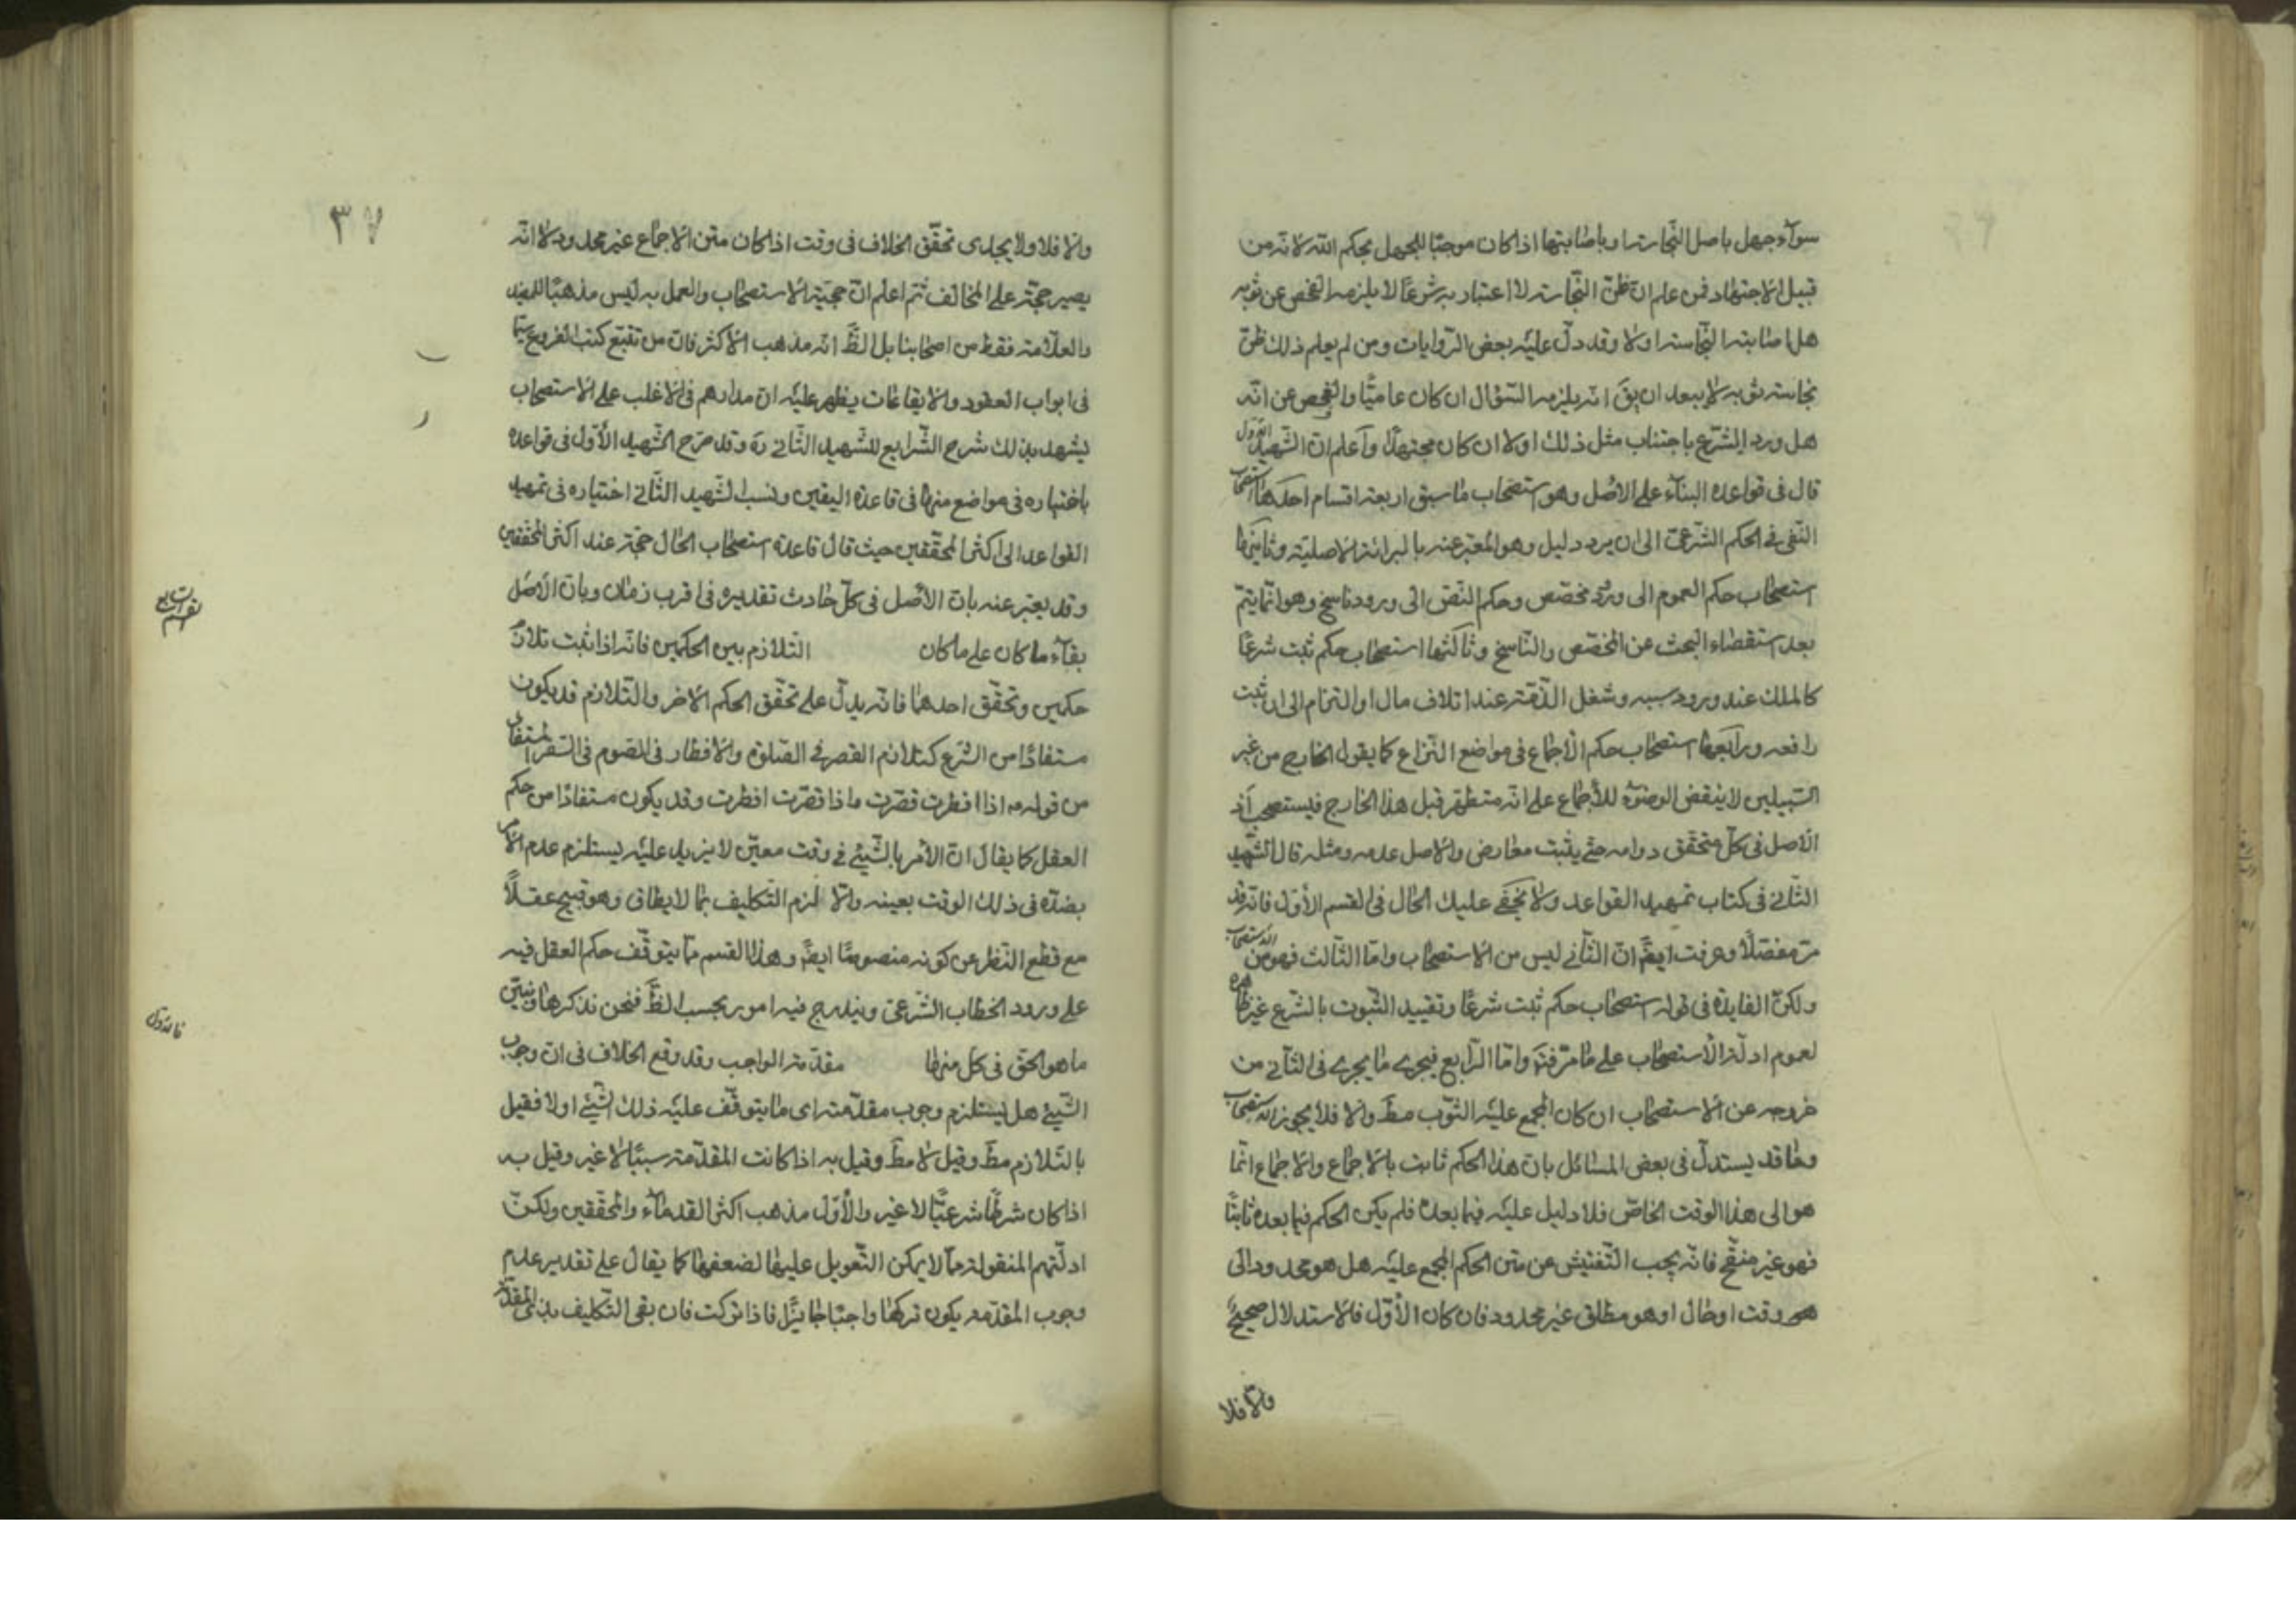 سوآء جهل باصل النّجاسته او باصابتها اذا كان موجبًا للجهل بحكم الله لانه من
قبيل الاجتهاد فمن علم ان ظنّ النّجاسته لا اعتبار به شرعًا لا يلزمه الفحص عن ثوبه
هل اصابته النّجاسته اولا وقد دلّ عليه بعض الرّوايات ومن لم يعلم ذلك ظنّ
نجاسته ثوبه لا يبعد ان يق انه يلزمه السّؤال ان كان عاميًّا والفحص عن انّه
هل ورد الشّرع باجتناب مثل ذلك اولا ان كان مجتهدًا وآعلم انّ الشّهيد الاوّل
قال فى قواعده البنآء على الاصل وهو استصحاب ما سبق اربعة اقسام احدها استصحاب
النّفى فى الحكم الشّرعىّ الى ان يرد دليل وهو المعبّر عنه بالبرائة الاصليّة وثانيها
استصحاب حكم العموم الى ورود مخصّص وحكم النّصّ الى ورود ناسخ وهو انّما يتمّ
بعد استقصاء البحث عن المخصّص والنّاسخ وثالثها استصحاب حكم ثبت شرعًا
كالملك عند ورود سببه وشغل الذّمّة عند اتلاف مال او التزام الى ان يثبت
رافعه ورابعها استصحاب حكم الاجماع فى مواضع النّزاع كما يقول الخارج من غير
السّبيلين لا ينقض الوضوء للاجماع على انّه متطهّر قبل هذا الخارج فيستصحب اذ
الاصل فى كلّ متحقّق دوامه حتّى يثبت معارض والاصل عدمه ومثله قال الشّهيد
الثّانى فى كتاب تمهيد القواعد ولا يخفى عليك الحال فى القسم الاوّل فانّه قد
مرّ مفصّلًا وعرفت ايضًا انّ الثّانى ليس من الاستصحاب وامّا الثّالث فهو من الاستصحاب
ولكنّ الفايدة فى قوله استصحاب حكم ثبت شرعًا وتقييد الثّبوت بالشّرع غير ظاهرة
لعموم ادلّة الاستصحاب على ما مرّ فتد وامّا الرّابع فيجرى ما يجرى فى الثّانى من
خروجه عن الاستصحاب ان كان المجمع عليه الثّوب مط والا فلا يجوز الاستصحاب
وما قد يستدلّ فى بعض المسائل بانّ هذا الحكم ثابت بالاجماع والاجماع انّما
هو الى هذا الوقت الخاصّ فلا دليل عليه فيما بعده فلم يكن الحكم فيما بعده ثابتًا
فهو غير منقّح فانّه يجب التّفتيش عن متن الحكم المجمع عليه هل هو محدود الى
وقت او حال او هو مطلق غير محدود فان كان الاوّل فالاستدلال صحيح
والّا فلا
٣٧
والّا فلا ولا يجدى تحقّق الخلاف فى وقت اذا كان متن الاجماع غير محدود لانّه
يصير حجّة على المخالف ثمّ اعلم انّ حجّيّة الاستصحاب والعمل به ليس مذهبًا للمفيد
والعلّامة فقط من اصحابنا بل الظّ انّه مذهب الاكثر فانّ من تتبّع كتب الفروع سيّما
فى ابواب العقود والايقاعات يظهر عليه ان مدارهم فى الاغلب على الاستصحاب
يشهد بذلك شرح الشّرايع للشّهيد الثّانى ره وقد صرّح الشّهيد الاوّل فى قواعده
باختياره فى مواضع منها فى قاعدة اليقين ونسب الشّهيد الثّانى اختياره فى تمهيد
القواعد الى اكثر المحقّقين حيث قال قاعدة استصحاب الحال حجّة عند اكثر المحقّقين
وقد يعبّر عنه بانّ الاصل فى كلّ حادث تقديره فى اقرب زمان وبانّ الاصل
بقآء ما كان على ما كان التّلازم بين الحكمين فانّه اذا ثبت تلازم
حكمين وتحقّق احدهما فانّه يدلّ على تحقّق الحكم الاخر والتّلازم قد يكون
مستفادًا من الشّرع كتلازم القصر فى الصّلوة والافطار فى الصّوم فى السّفر المستفاد
من قوله اذا افطرت قصّرت واذا قصّرت افطرت وقد يكون مستفادًا من حكم
العقل كما يقال انّ الامر بالشّيئ فى وقت معيّن لا يزيد عليه يستلزم عدم الامر
بضدّه فى ذلك الوقت بعينه والّا لزم التّكليف بما لا يطاق وهو قبيح عقلًا
مع قطع النّظر عن كونه منصوصًا ايضًا وهذا القسم ممّا يتوقّف حكم العقل فيه
على ورود الخطاب الشّرعىّ ويندرج فيه امور بحسب الظّ فنحن نذكرها ونبيّن
ما هو الحقّ فى كلّ منها مقدّمة الواجب وقد وقع الخلاف فى انّ وجوب
الشّيئ هل يستلزم وجوب مقدّمته اى ما يتوقّف عليه ذلك الشّيئ اولا فقيل
بالتّلازم مط وقيل لا مط وقيل به اذا كانت المقدّمة سببًا لا غير وقيل به
اذا كان شرطًا شرعيًّا لا غير والاوّل مذهب اكثر القدمآء والمحقّقين ولكنّ
ادلّتهم المنقولة ممّا لا يمكن التّعويل عليها لضعفها كما يقال على تقدير عدم
وجوب المقدّمه يكون تركها واجبًا جائزًا فاذا تركت فان بقى التّكليف بذى المقدّمة
القسم الرابع
فالاول